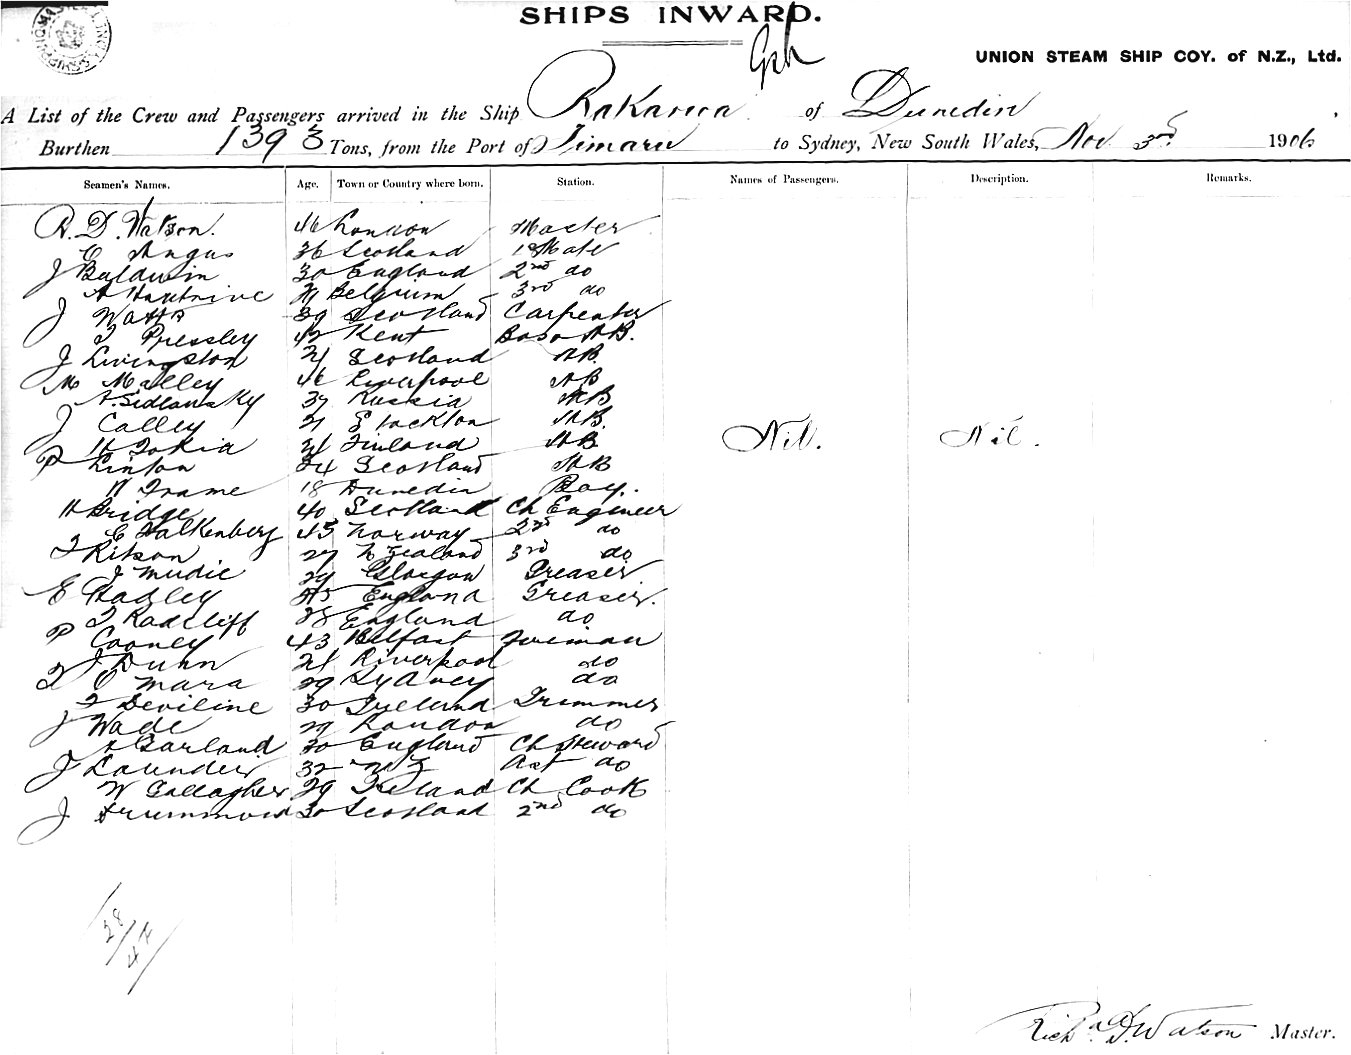 SHIPS INWARD.
UNION STEAM SHIP COY. of N.Z., Ltd.
A List of the Crew and Passengers arrived in the Ship Rakanoa of Dunedin,
Burthen 1393 Tons, from the Port of Timaru to Sydney, New South Wales, Nov 3rd 1906
Seamen's Names. Age. Town or Country where born. Station. Names of Passengers. Description. Remarks.
R. D. Watson. 46 London Master
C Angus 36 Scotland 1st Mate
J Baldwin 30 England 2nd do
A Belgium 3rd do
J Watts 39 Scotland Carpenter
T Pressley 42 Kent Bosn AB.
J Livingston 21 Scotland AB.
M Malley 46 Liverpool AB
A. Sedlansky 37 Russia AB
J Calley 21 Stockton AB.
H Finland AB
P Linton 24 Scotland AB
W Frame 18 Dunedin Boy.
Nil. Nil.
H Bridge 40 Scotland Ch Engineer
C Falkenberg 45 Norway 2nd do
T Ritson 27 N Zealand 3rd do
J Mudie 29 Glasgow Greaser
E Hadley England Greaser.
T Radcliff 28 England do
P Cooney 43 Belfast Fireman
J Dunn 21 Liverpool do
T O Mara 29 Sydney do
T Deviline 30 Ireland Trimmer
J Wade 27 London do
A Garland 30 England Ch Steward
J Launder 32 NZ Ast do
W Gallagher 29 Ireland Ch Cook
J Drummond 30 Scotland 2nd do
28/47
Richd D. Watson Master.